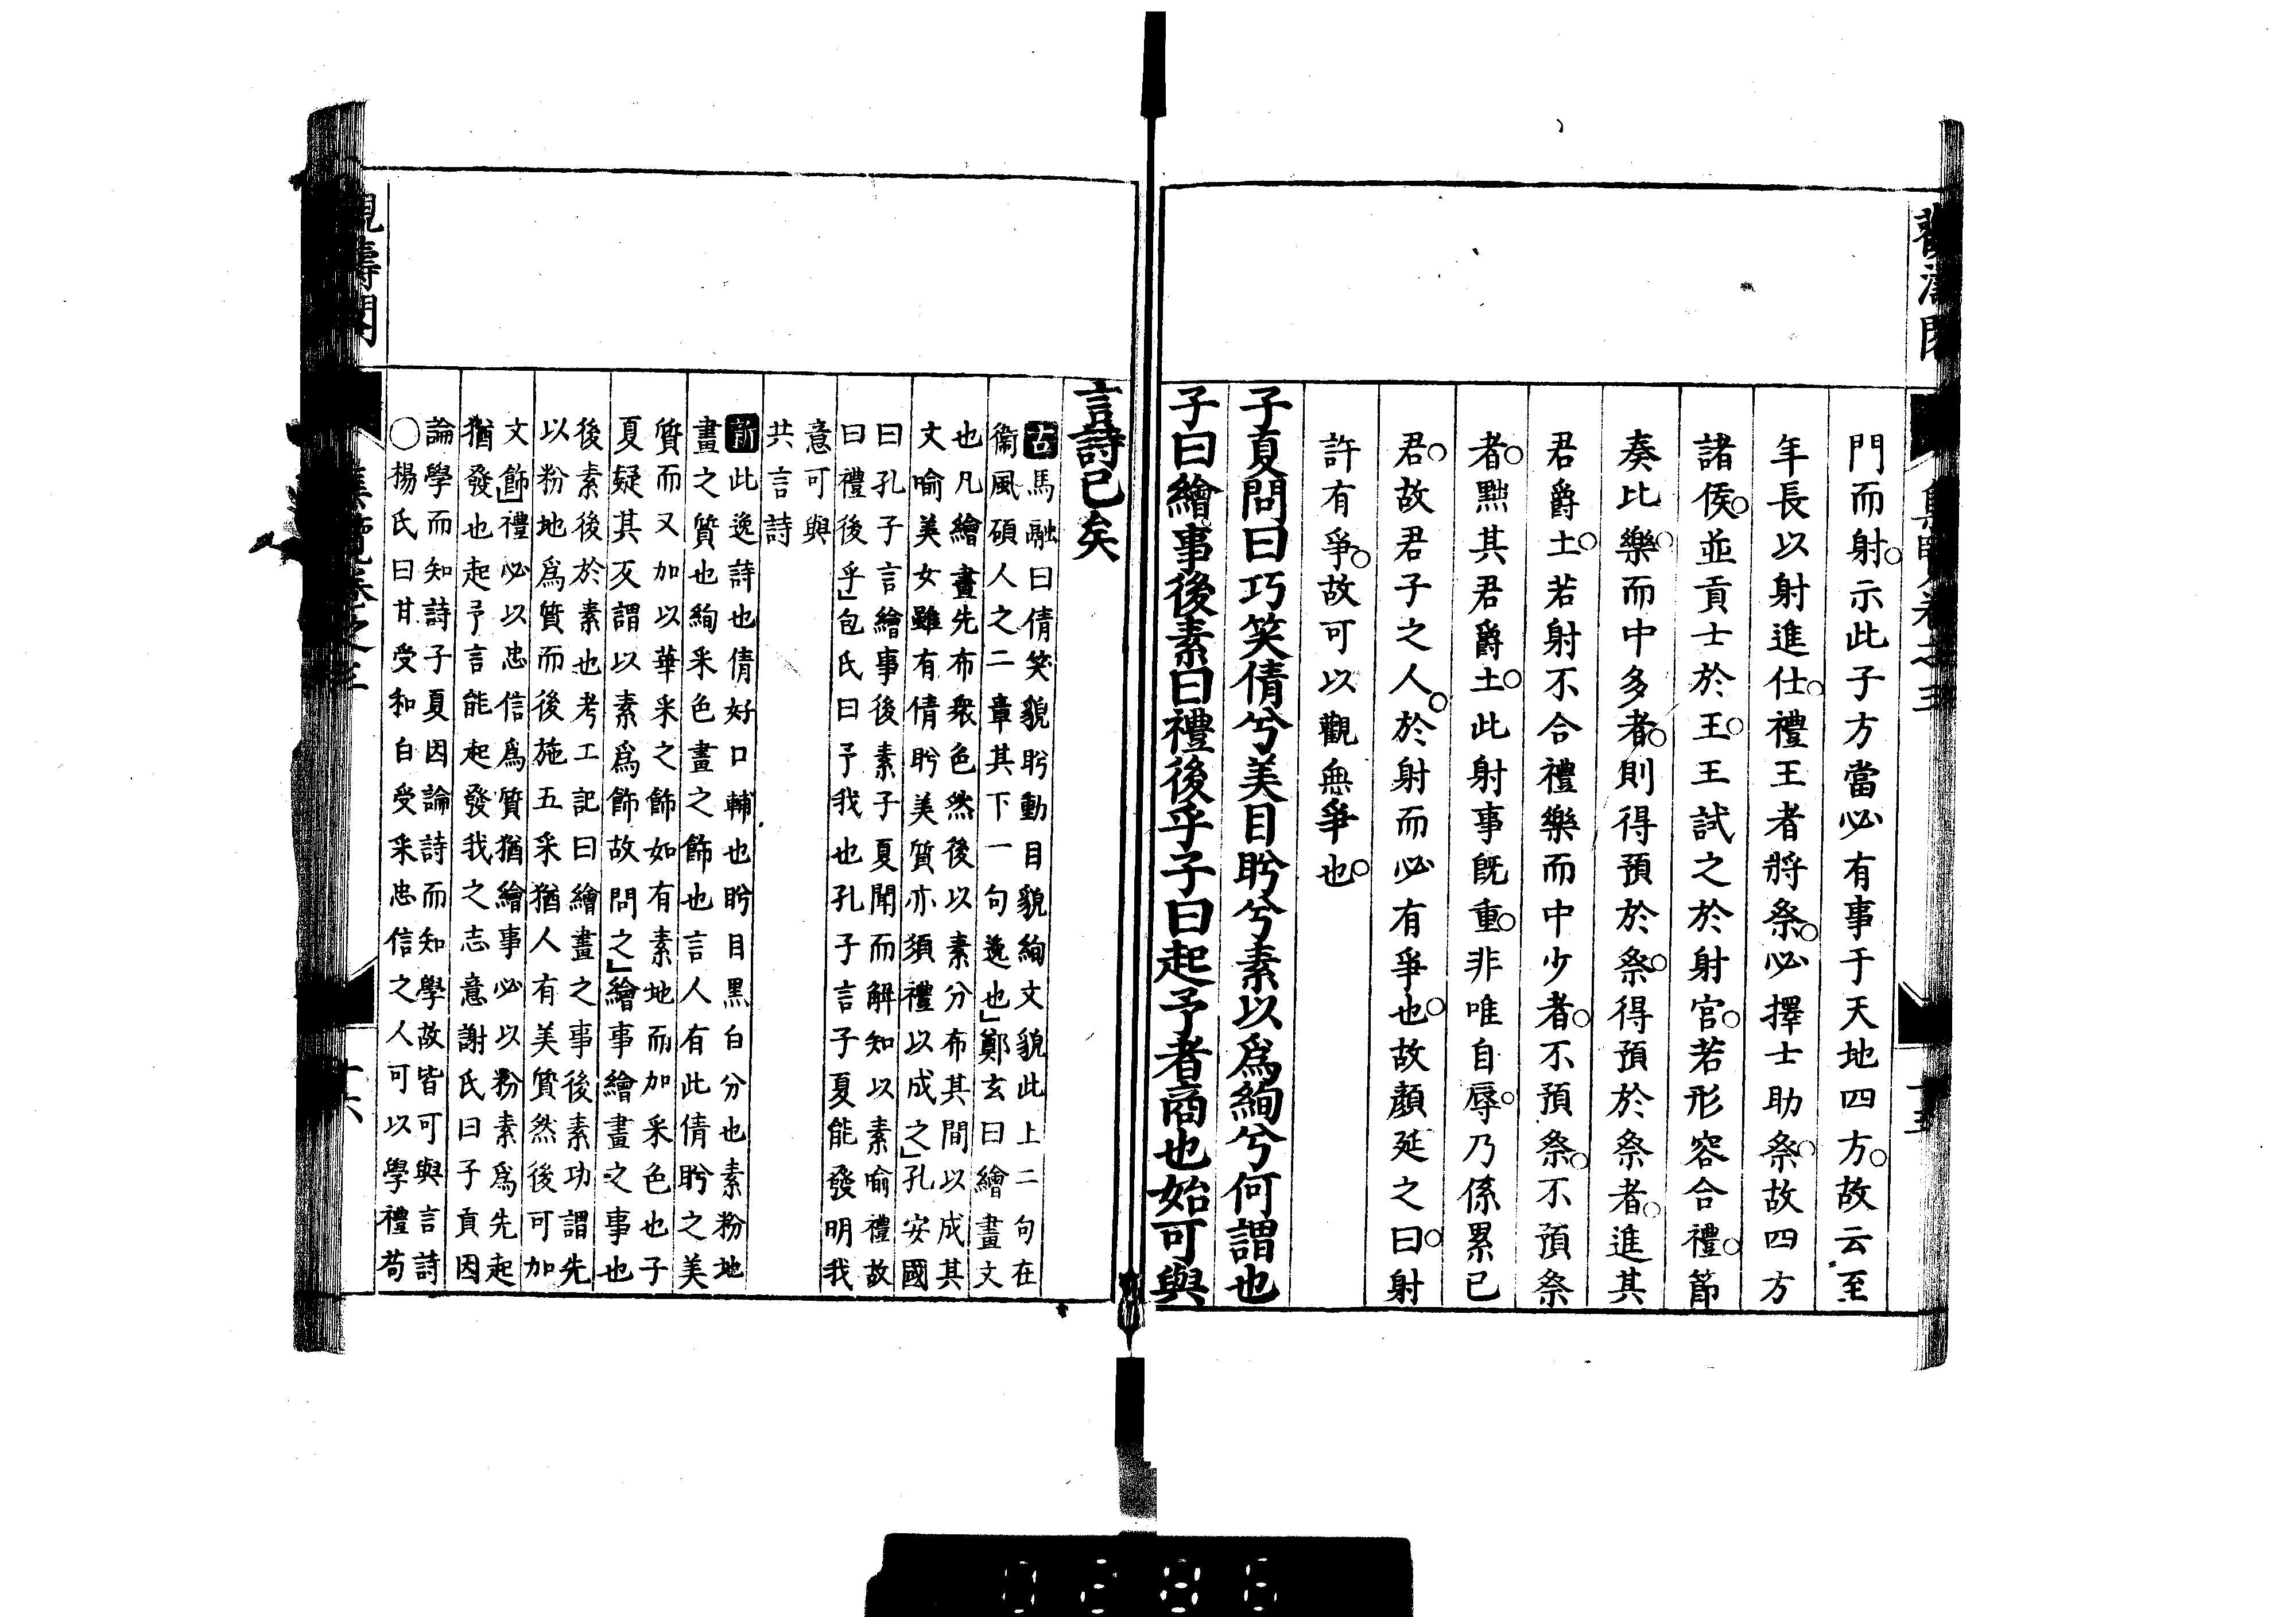 門而射示此子方當必有事于天地四方故云至
年長以射進仕禮王者將祭必擇士助祭故四方
諸侯並貢士於王王試之於射官若形容合禮節
奏比樂而中多者則得預於祭得預於祭者進其
君爵土若射不合禮樂而中少者不預祭不預祭
者黜其君爵土此射事旣重非唯自辱乃係累已
君故君子之人於射而必有爭也故顏延之曰射
許有爭故可以觀無爭也
子夏問曰巧笑倩兮美目盼兮素以爲絢兮何謂也
子曰繪事後素曰禮後乎子曰起予者商也始可與
言詩已矣
古馬融曰倩笑貌盼動目貌絢文貌此上二句在
衞風碩人之二章其下一句逸也」鄭玄曰繪畫文
也凡繪畫先布衆色然後以素分布其間以成其
文喻美女雖有倩盼美質亦須禮以成之」孔安國
曰孔子言繪事後素子夏聞而解知以素喻禮故
曰禮後乎」包氏曰予我也孔子言子夏能發明我
意可與
共言詩
新此逸詩也倩好口輔也盼目黑白分也素粉地
畫之質也絢采色畫之飾也言人有此倩盼之美
質而又加以華采之飾如有素地而加采色也子
夏疑其反謂以素爲飾故問之」繪事繪畫之事也
後素後於素也考工記曰繪畫之事後素功謂先
以粉地爲質而後施五采猶人有美質然後可加
文飾」禮必以忠信爲質猶繪事必以粉素爲先起
猶發也起予言能起發我之志意謝氏曰子貢因
論學而知詩子夏因論詩而知學故皆可與言詩
○楊氏曰甘受和白受采忠信之人可以學禮苟